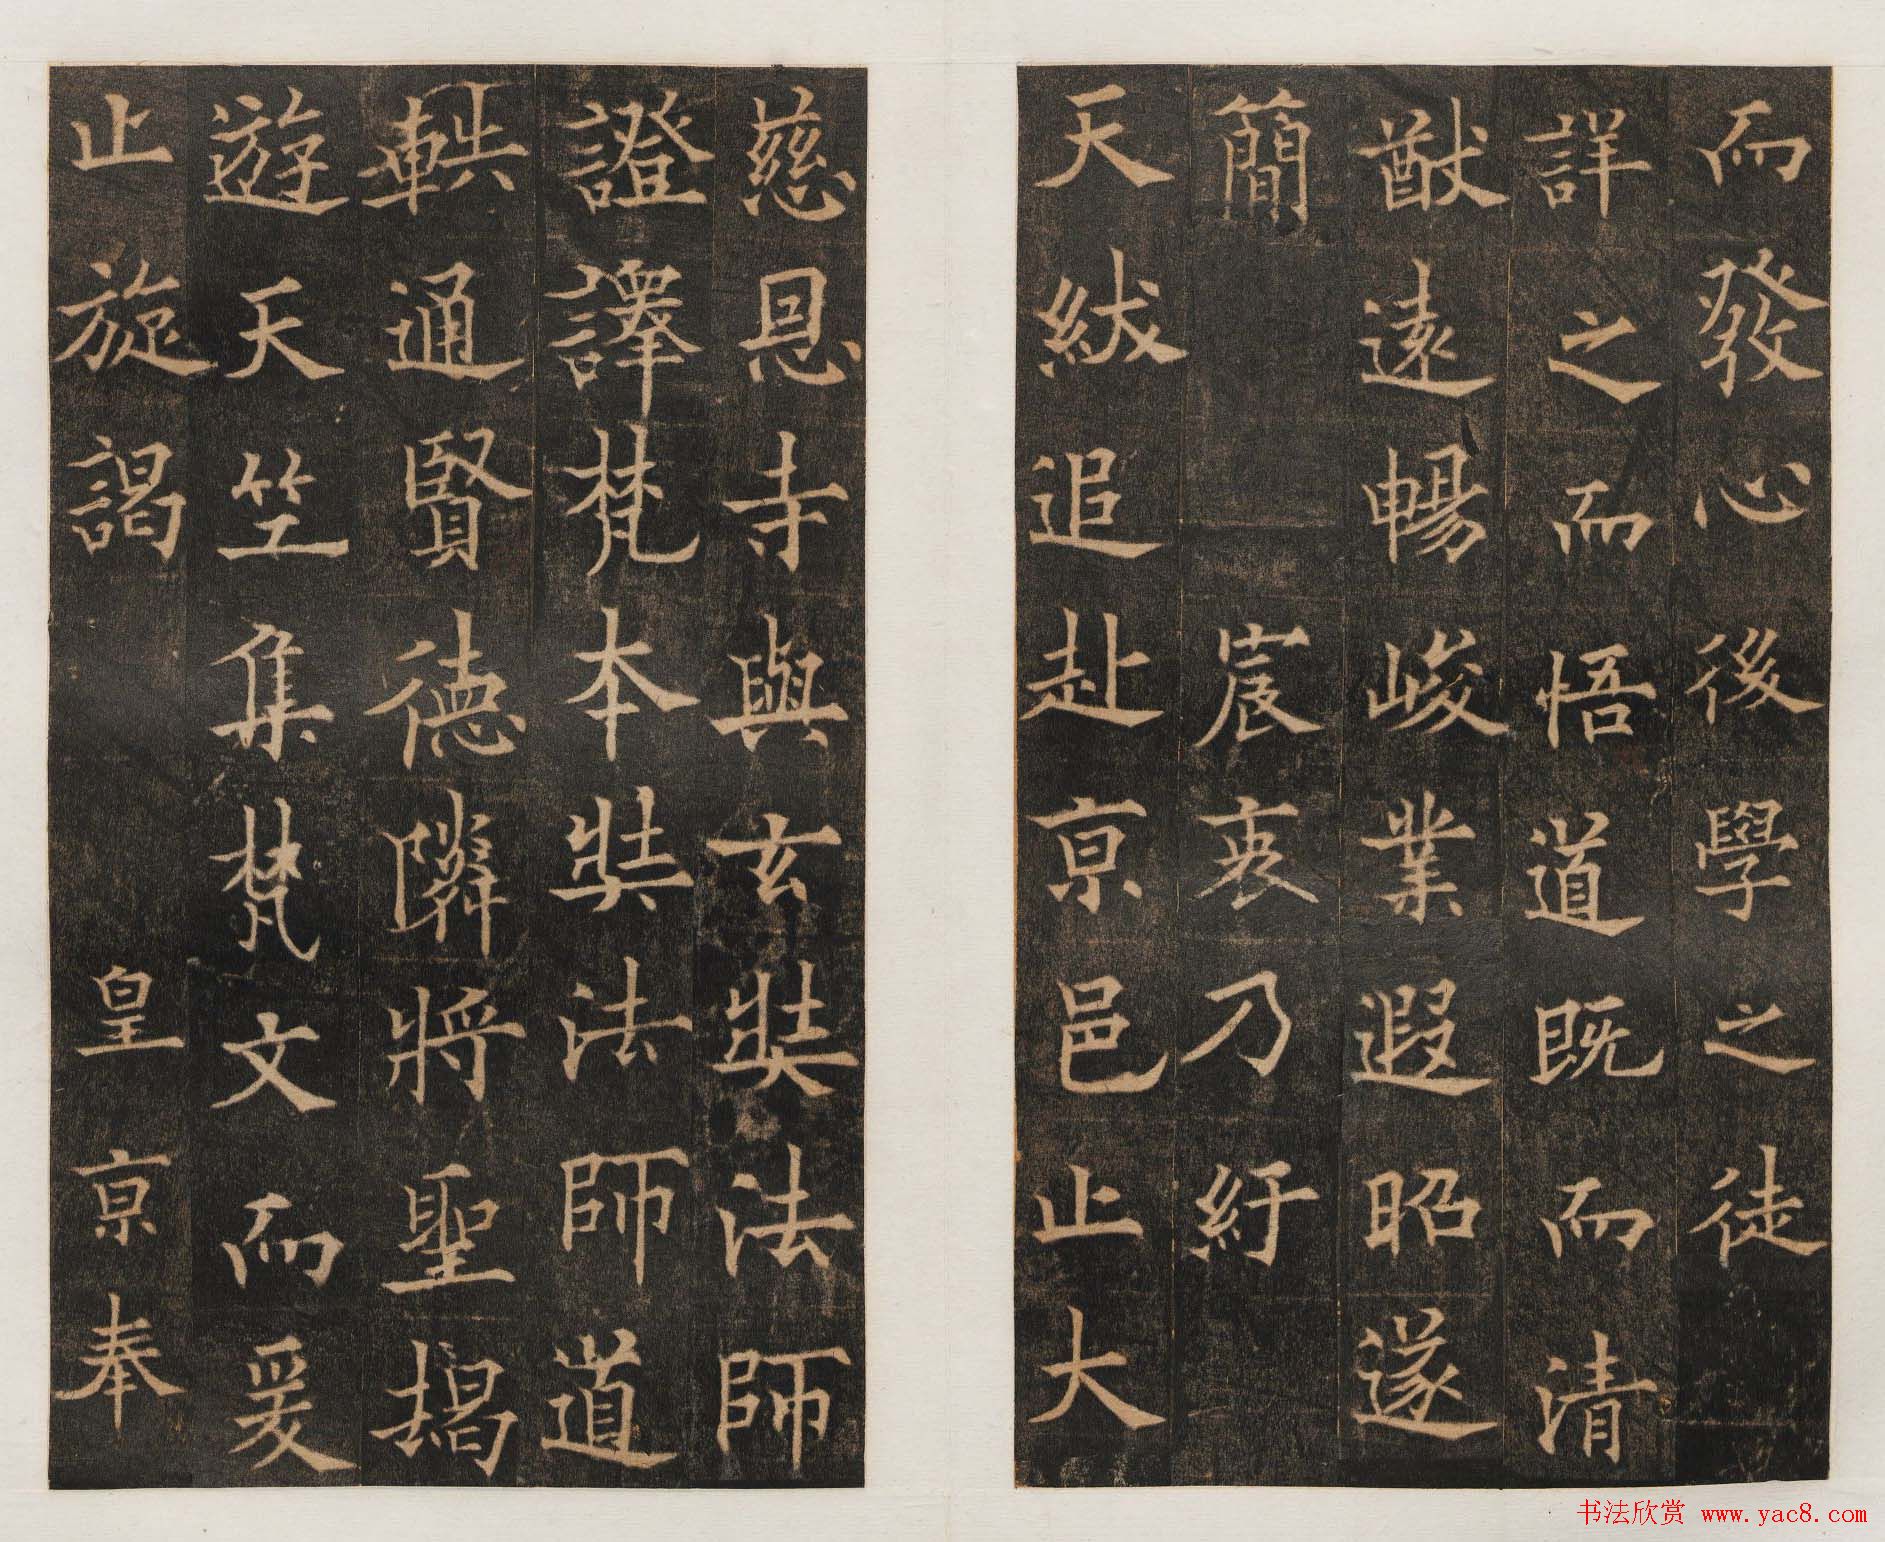 而發心後學之徒
詳之而悟道既而清
猷遠暢峻業遐昭遂
簡宸衷乃紆
天紱追赴京邑止大
慈恩寺與玄奘法師
證譯梵本奘法師道
軼通賢德隣將聖揭
遊天竺集梵文而爰
止旋謁皇京奉
书法欣赏 www.yac8.com